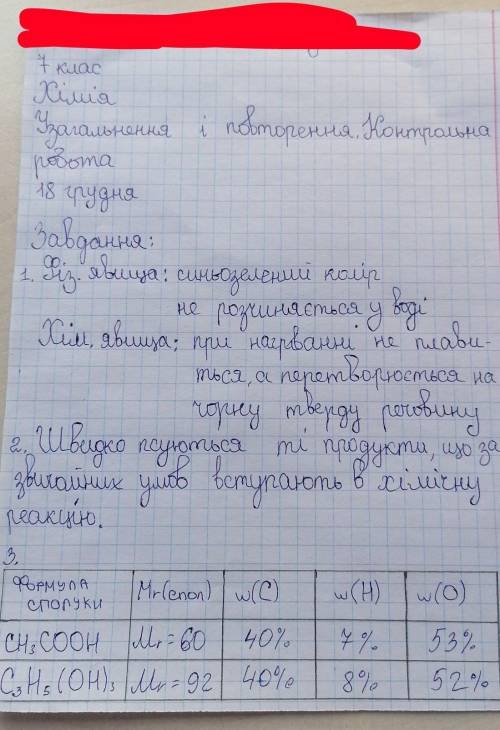 7 клас
Хімія
Узагальнення і повторення. Контрольна
робота
18 грудня
Завдання:
1. Фіз. явища: синьозелений колір
не розчиняється у воді
Хім. явища: при нагріванні не плави-
ться, а перетворюється на
чорну тверду речовину
2. Швидко псуються ті продукти, що за
звичайних умов вступають в хімічну
реакцію.
3.
Формула сполуки Mr(спол) w(C) w(H) w(O)
CH₃COOH Mr=60 40% 7% 53%
C₃H₅(OH)₃ Mr=92 40% 8% 52%